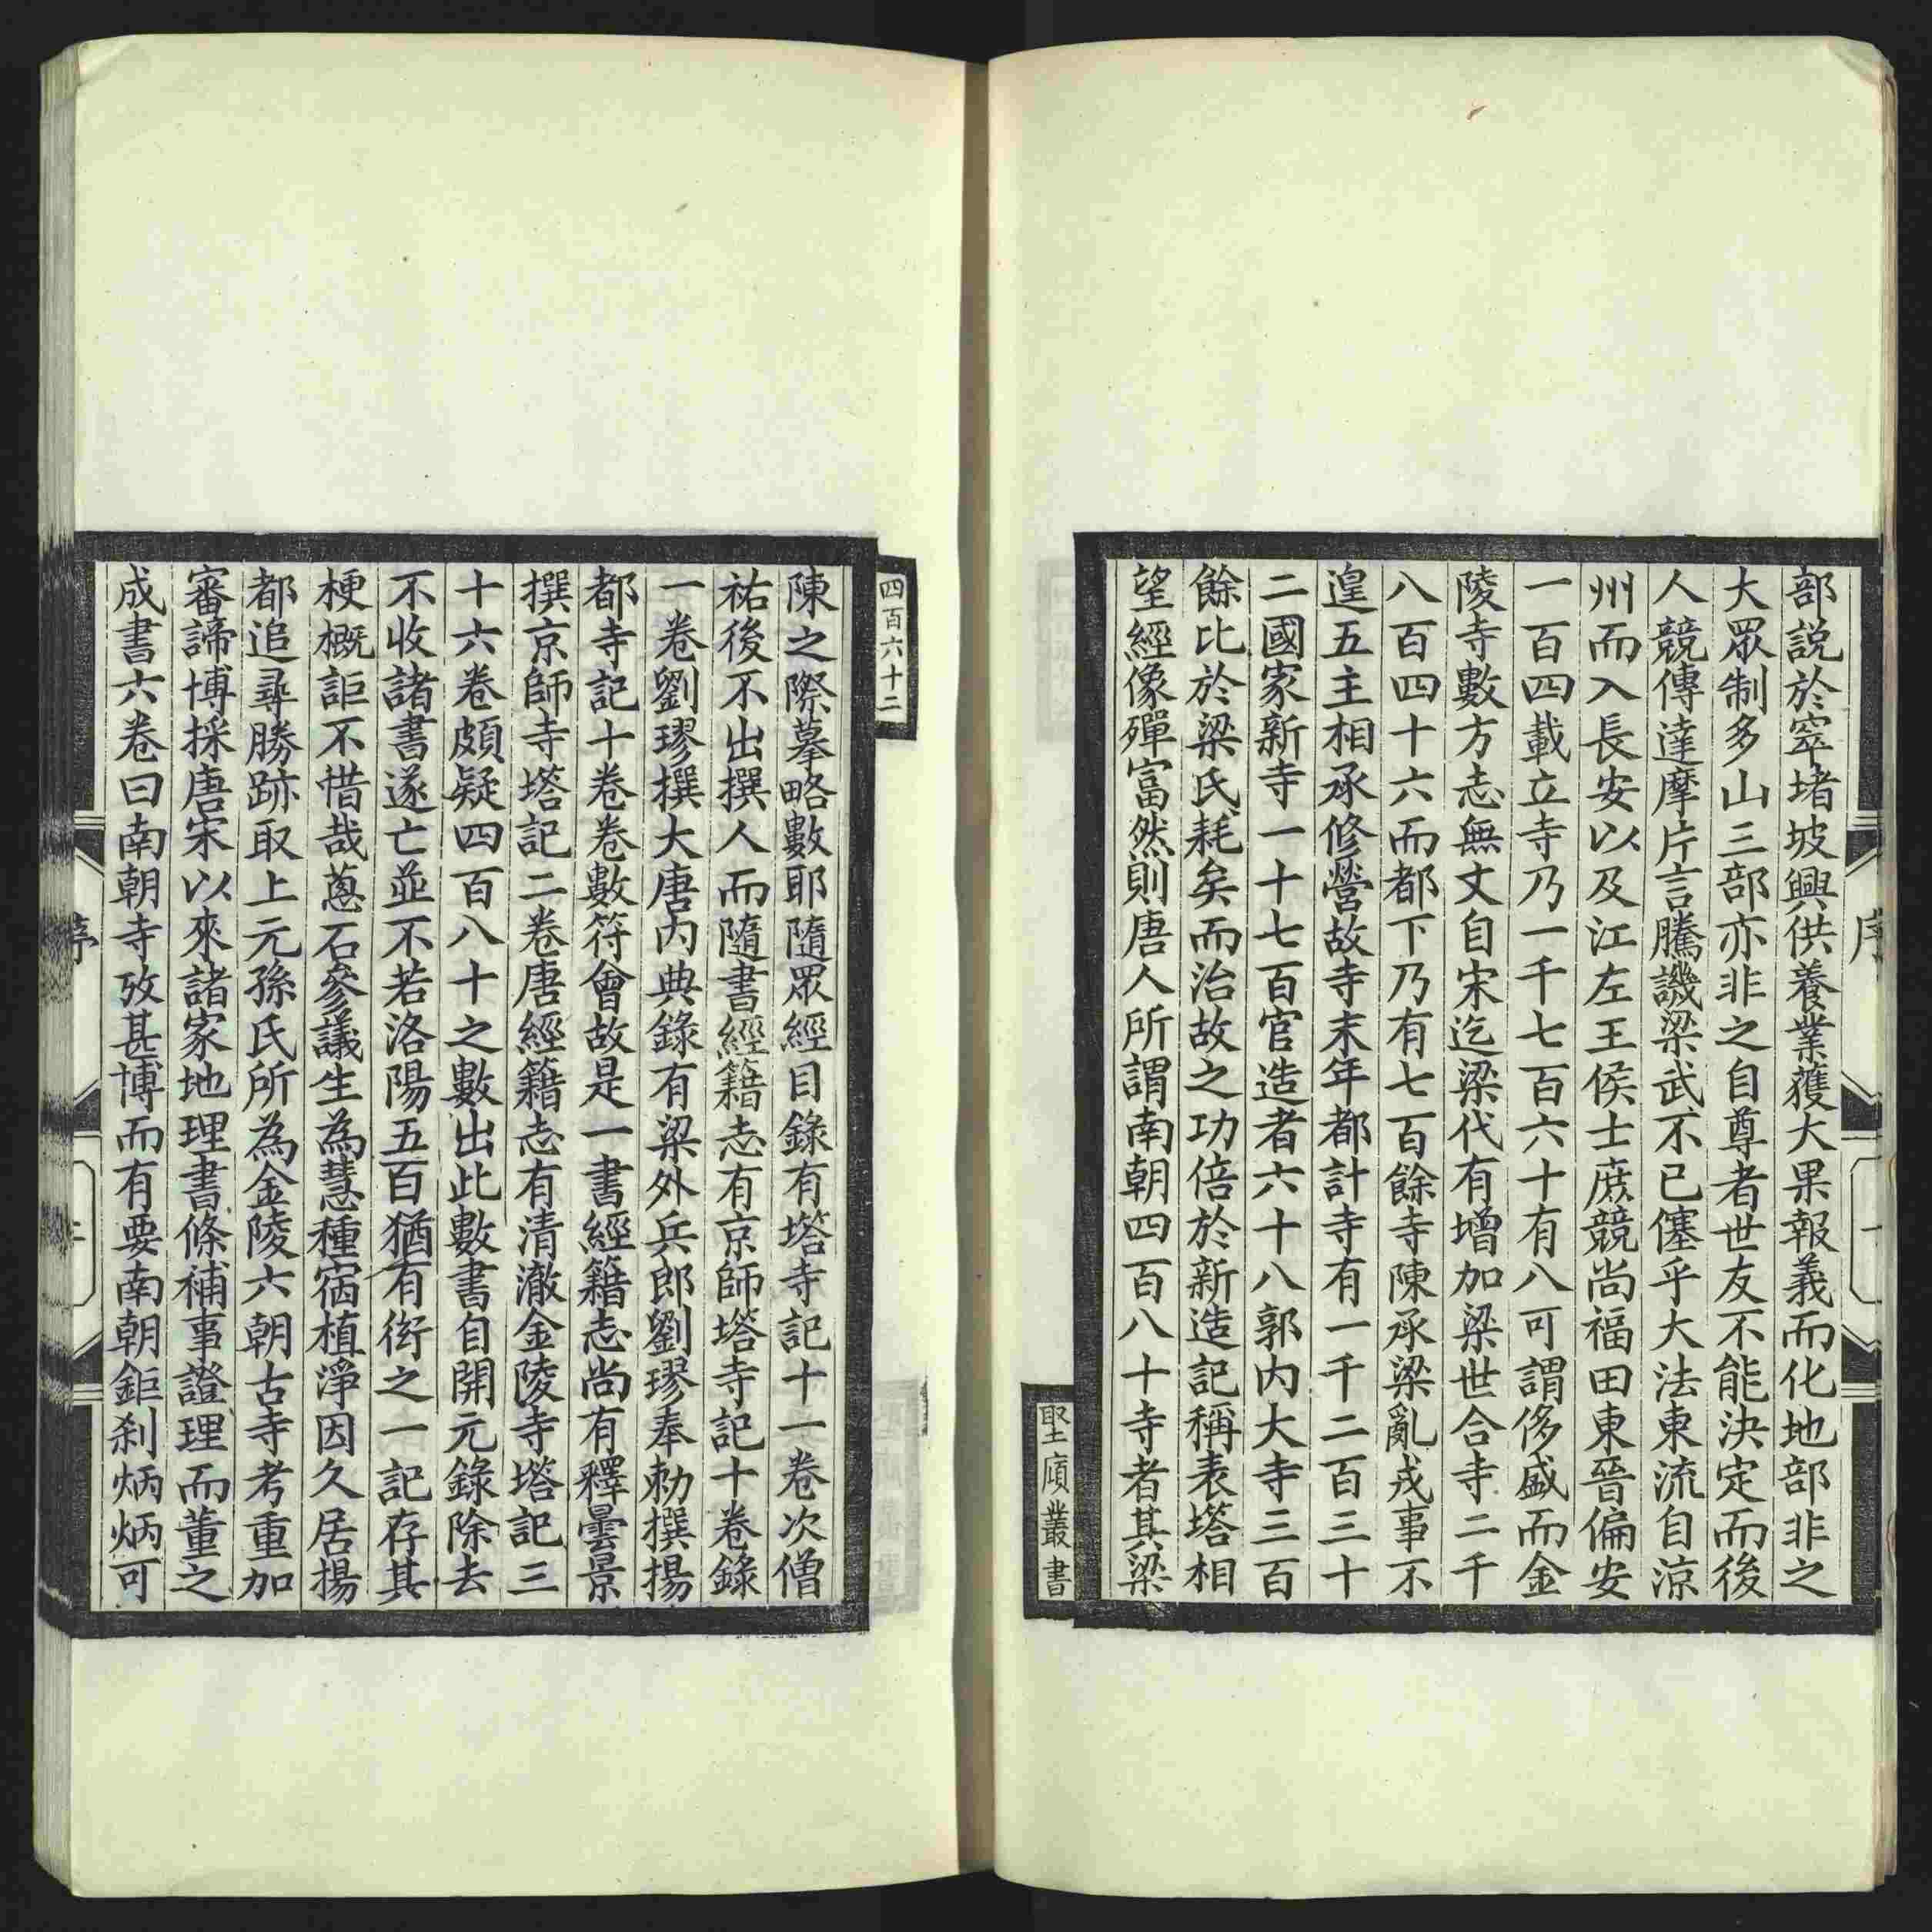 部説於窣堵坡興供養業獲大果報義而化地部非之
大眾制多山三部亦非之自尊者世友不能決定而後
人競傳達摩片言騰譏梁武不已僿乎大法東流自涼
州而入長安以及江左王侯士庶競尚福田東晉偏安
一百四載立寺乃一千七百六十有八可謂侈盛而金
陵寺數方志無文自宋迄梁代有增加梁世合寺二千
八百四十六而都下乃有七百餘寺陳承梁亂戎事不
遑五主相承修營故寺末年都計寺有一千二百三十
二國家新寺一十七百官造者六十八郭內大寺三百
餘比於梁氏耗矣而治故之功倍於新造記稱表塔相
望經像殫富然則唐人所謂南朝四百八十寺者其梁
序
一
堅𢈪叢書
四百六十二
陳之際摹略數耶隨眾經目錄有塔寺記十一卷次僧
祐後不出撰人而隨書經籍志有京師塔寺記十卷錄
一卷劉璆撰大唐內典錄有梁外兵郎劉璆奉勅撰揚
都寺記十卷卷數符會故是一書經籍志尚有釋曇景
撰京師寺塔記二卷唐經籍志有清澈金陵寺塔記三
十六卷頗疑四百八十之數出此數書自開元錄除去
不收諸書遂亡並不若洛陽五百猶有衒之一記存其
梗概詎不惜哉蔥石參議生為慧種宿植淨因久居揚
都追尋勝跡取上元孫氏所為金陵六朝古寺考重加
審諦博採唐宋以來諸家地理書條補事證理而董之
成書六卷曰南朝寺攷甚博而有要南朝鉅刹炳炳可
序